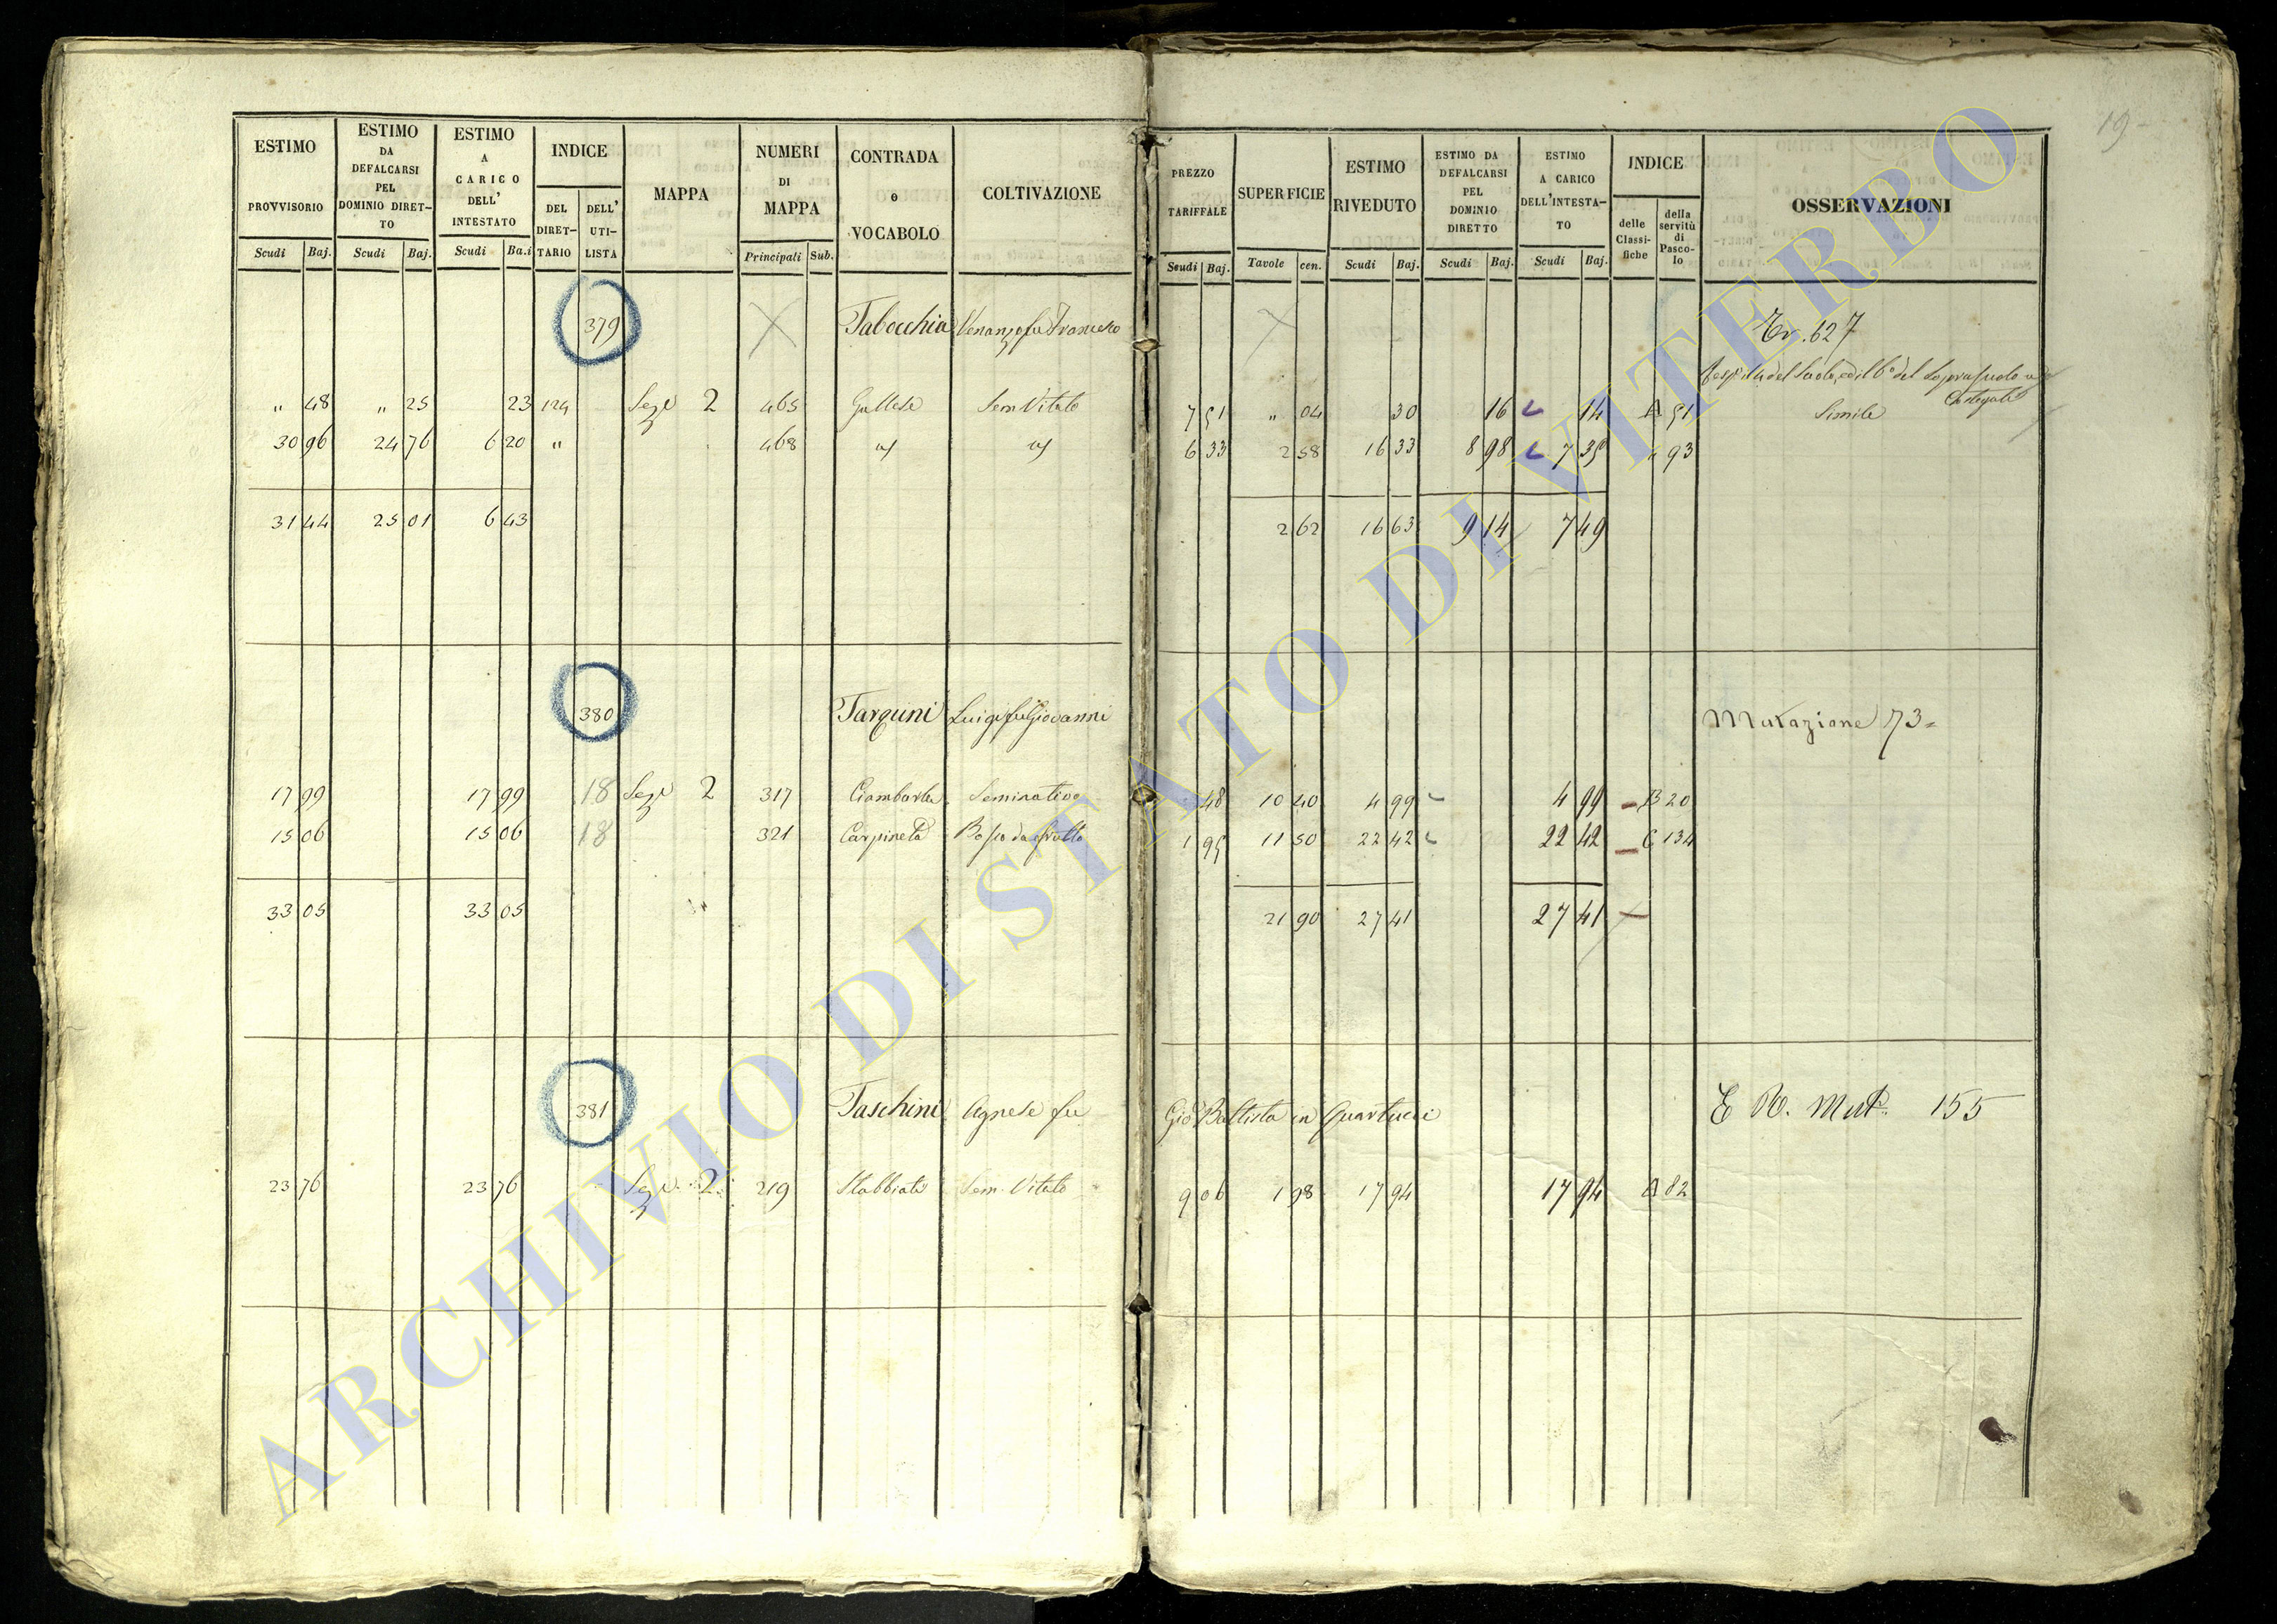 19
ESTIMO PROVVISORIO Scudi Baj.
ESTIMO DA DEFALCARSI PEL DOMINIO DIRET- TO Scudi Baj.
ESTIMO A CARICO DELL' INTESTATO Scudi Ba.i
INDICE DEL DIRET- TARIO DELL' UTI- LISTA
MAPPA
NUMERI DI MAPPA Principali Sub.
CONTRADA o VOCABOLO
COLTIVAZIONE
PREZZO TARIFFALE Scudi Baj.
SUPERFICIE Tavole cen.
ESTIMO RIVEDUTO Scudi Baj.
ESTIMO DA DEFALCARSI PEL DOMINIO DIRETTO Scudi Baj.
ESTIMO A CARICO DELL'INTESTA- TO Scudi Baj.
INDICE delle Classi- fiche della servitù di Pasco- lo
OSSERVAZIONI
379 Tabocchia Venanzo fu Francesco 627
" 48 " 25 23 124 Seze 2 465 Gallese Sem Vitato 7 51 " 04 30 16 14 A 51 Simile
30 96 24 76 6 20 " 468 6 33 2 58 16 33 8 98 7 35 " 93
31 44 25 01 6 43 2 62 16 63 9 14 7 49
380 Tarquini Luigi fu Giovanni Mutazione 73=
17 99 17 99 18 Seze 2 317 Seminativo 48 10 40 4 99 4 99 B 20
15 06 15 06 18 321 Carpineta Bosco da frutto 1 95 11 50 22 42 22 42 C 134
33 05 33 05 21 90 27 41 27 41
381 Taschini Agnese fu Gio Battista in Quartucci Mut. 155
23 76 23 76 Seze 2 219 Stabbiate Sem. Vitato 9 06 1 98 17 94 17 94 A 82
ARCHIVIO DI STATO DI VITERBO